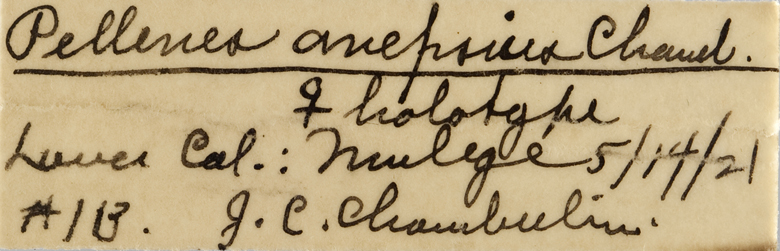 Pellenes anepsius Chaml.
♀ holotype
Lower Cal.: Mulegé 5/14/21
#1B. J. C. Chamberlin.